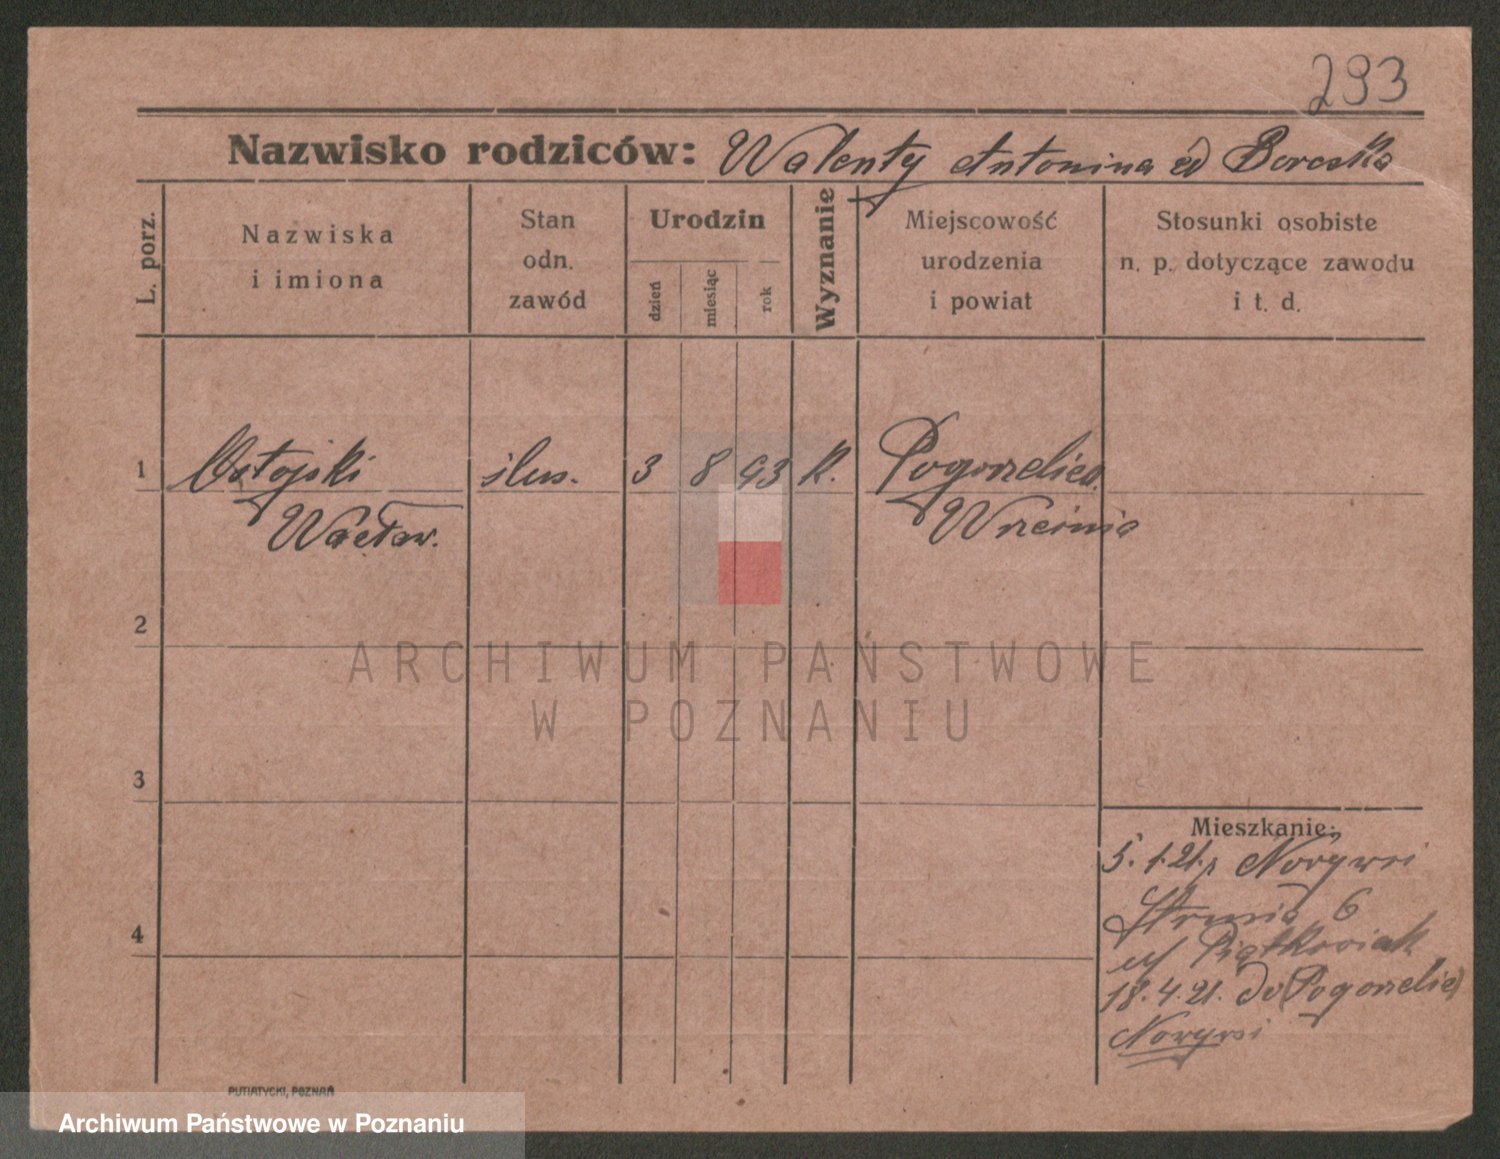 293
Nazwisko rodziców: Walenty Antonina
L. porz.
Nazwiska
i imiona
Stan
odn.
zawód
Urodzin
dzień
miesiąc
rok
Wyznanie
Miejscowość
urodzenia
i powiat
Stosunki osobiste
n. p. dotyczące zawodu
i t. d.
1
Ostojski
ślus.
3
8
93
K.
Pogorzelica
Wacław.
Września
2
3
4
ARCHIWUM PAŃSTWOWE
W POZNANIU
Mieszkanie:
5.1.21.
6
Piątkowiak
18.4.21. do Pogorzelic
PUTIATYCKI, POZNAŃ
Archiwum Państwowe w Poznaniu